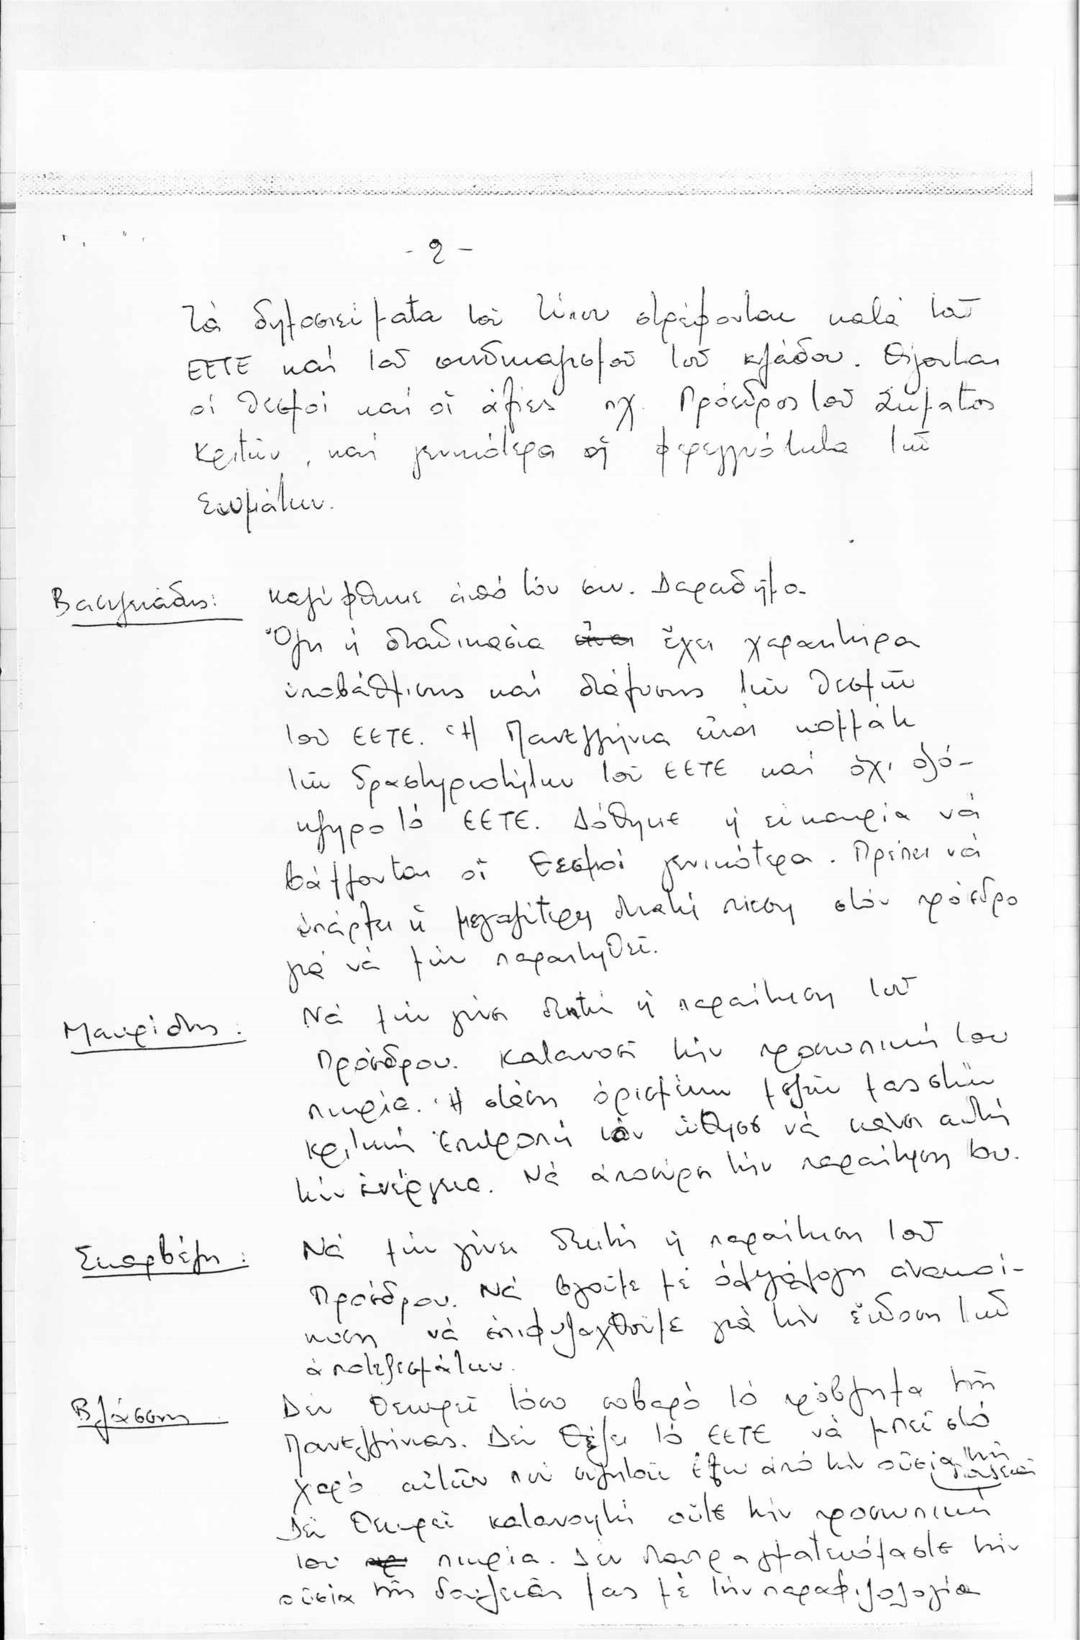 - 2 -
Τά δημοσιεύματα τοῦ Τύπου στρέφονται κατά τοῦ
ΕΕΤΕ καί τοῦ συνδικαλισμοῦ τοῦ κλάδου. Θίγονται
οἱ θεσμοί καί οἱ ἀξίες πχ. Πρόεδρος τοῦ Σώματος
Κριτῶν, καί γενικότερα ἡ φερεγγυότητα τῶν
Σωμάτων.
Βασιλειάδης: Καλύφθηκε ἀπό τόν συν. Δαραδῆμο.
Ὅλη ἡ διαδικασία ἔχει χαρακτήρα
ὑποβάθμισης καί διάλυσης τῶν θεσμῶν
τοῦ ΕΕΤΕ. Ἡ Πανελλήνια εἶναι κομμάτι
τῶν δραστηριοτήτων τοῦ ΕΕΤΕ καί όχι ὁλό-
κληρο τό ΕΕΤΕ. Δόθηκε ἡ εὐκαιρία νά
βάλλονται οἱ θεσμοί γενικότερα. Πρέπει νά
ὑπάρξει ἡ μεγαλύτερη δυνατή πίεση στόν πρόεδρο
γιά νά μήν παραιτηθεῖ.
Μαυρίδης: Νά μήν γίνει δεκτή ἡ παραίτηση τοῦ
Προέδρου. Κατανοεῖ τήν προσωπική του
πικρία. Ἡ στάση ὁρισμένων μελῶν μας στήν
Κριτική Ἐπιτροπή τόν ὤθησε νά κάνει αὐτή
τήν ἐνέργεια. Νά ἀποσύρει τήν παραίτηση του.
Σκαρβέλη: Νά μήν γίνει δεκτή ἡ παραίτηση τοῦ
Προέδρου. Νά βγοῦμε μέ ὀλιγόλογη ἀνακοί-
νωση νά ἐπιφυλαχθοῦμε γιά τήν ἔκδοση τῶν
ἀποτελεσμάτων.
Βλάσσης Δέν θεωρεῖ τόσο σοβαρό τό πρόβλημα τῆς
Πανελλήνιας. Δέν θέλει τό ΕΕΤΕ νά μπεῖ στό
χορό αὐτῶν πού συζητοῦν ἔξω ἀπό τήν οὐσία τῆς δουλειᾶς
Δέν θεωρεῖ κατανοητή οὔτε τήν προσωπική
του πικρία. Δέν πραγματευόμαστε τήν
οὐσία τῆς δουλειᾶς μας μέ τήν παραφιλολογία